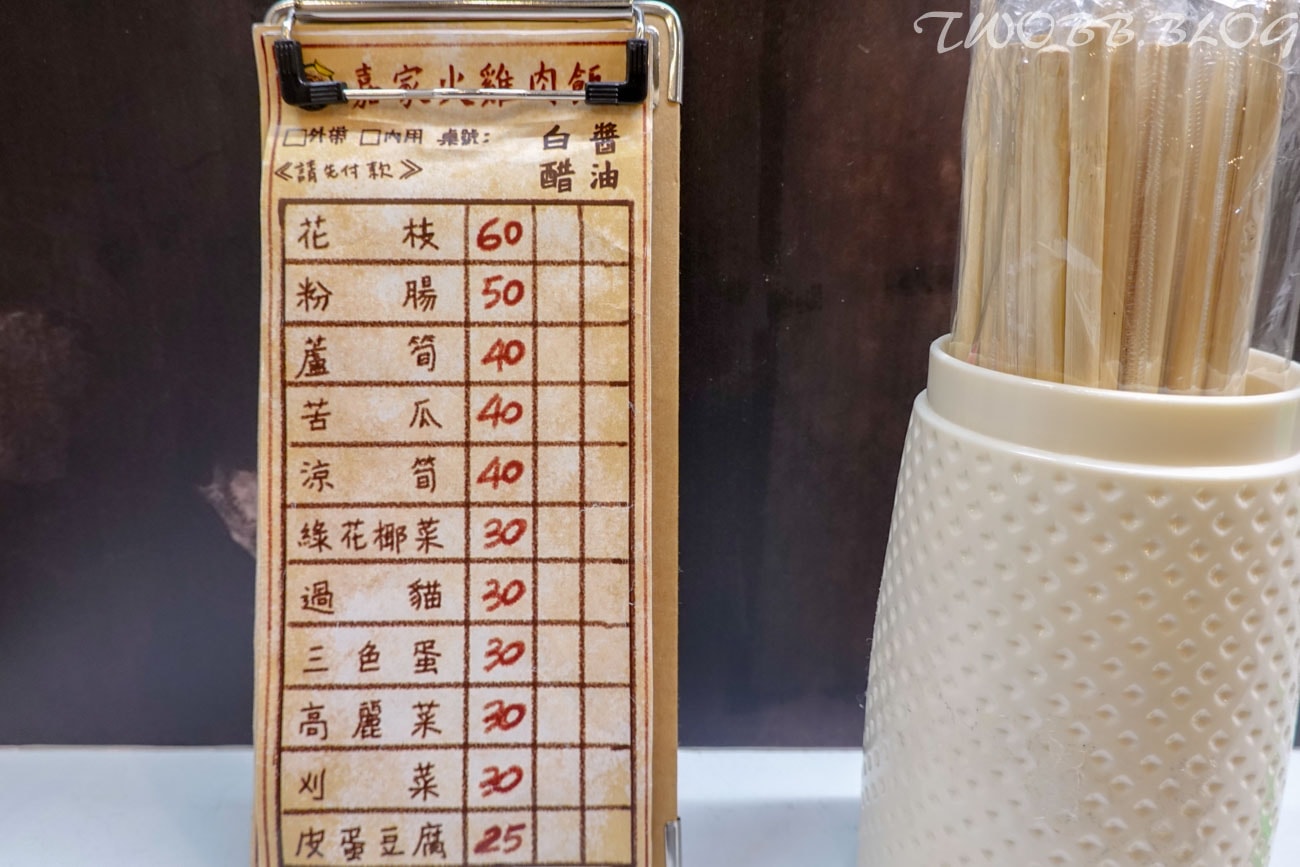 TWOBB.BLOG
嘉家火雞肉飯
□外帶 □內用 桌號:
≪請先付款≫
白醋 醬油
花枝 60
粉腸 50
蘆筍 40
苦瓜 40
涼筍 40
綠花椰菜 30
過貓 30
三色蛋 30
高麗菜 30
刈菜 30
皮蛋豆腐 25